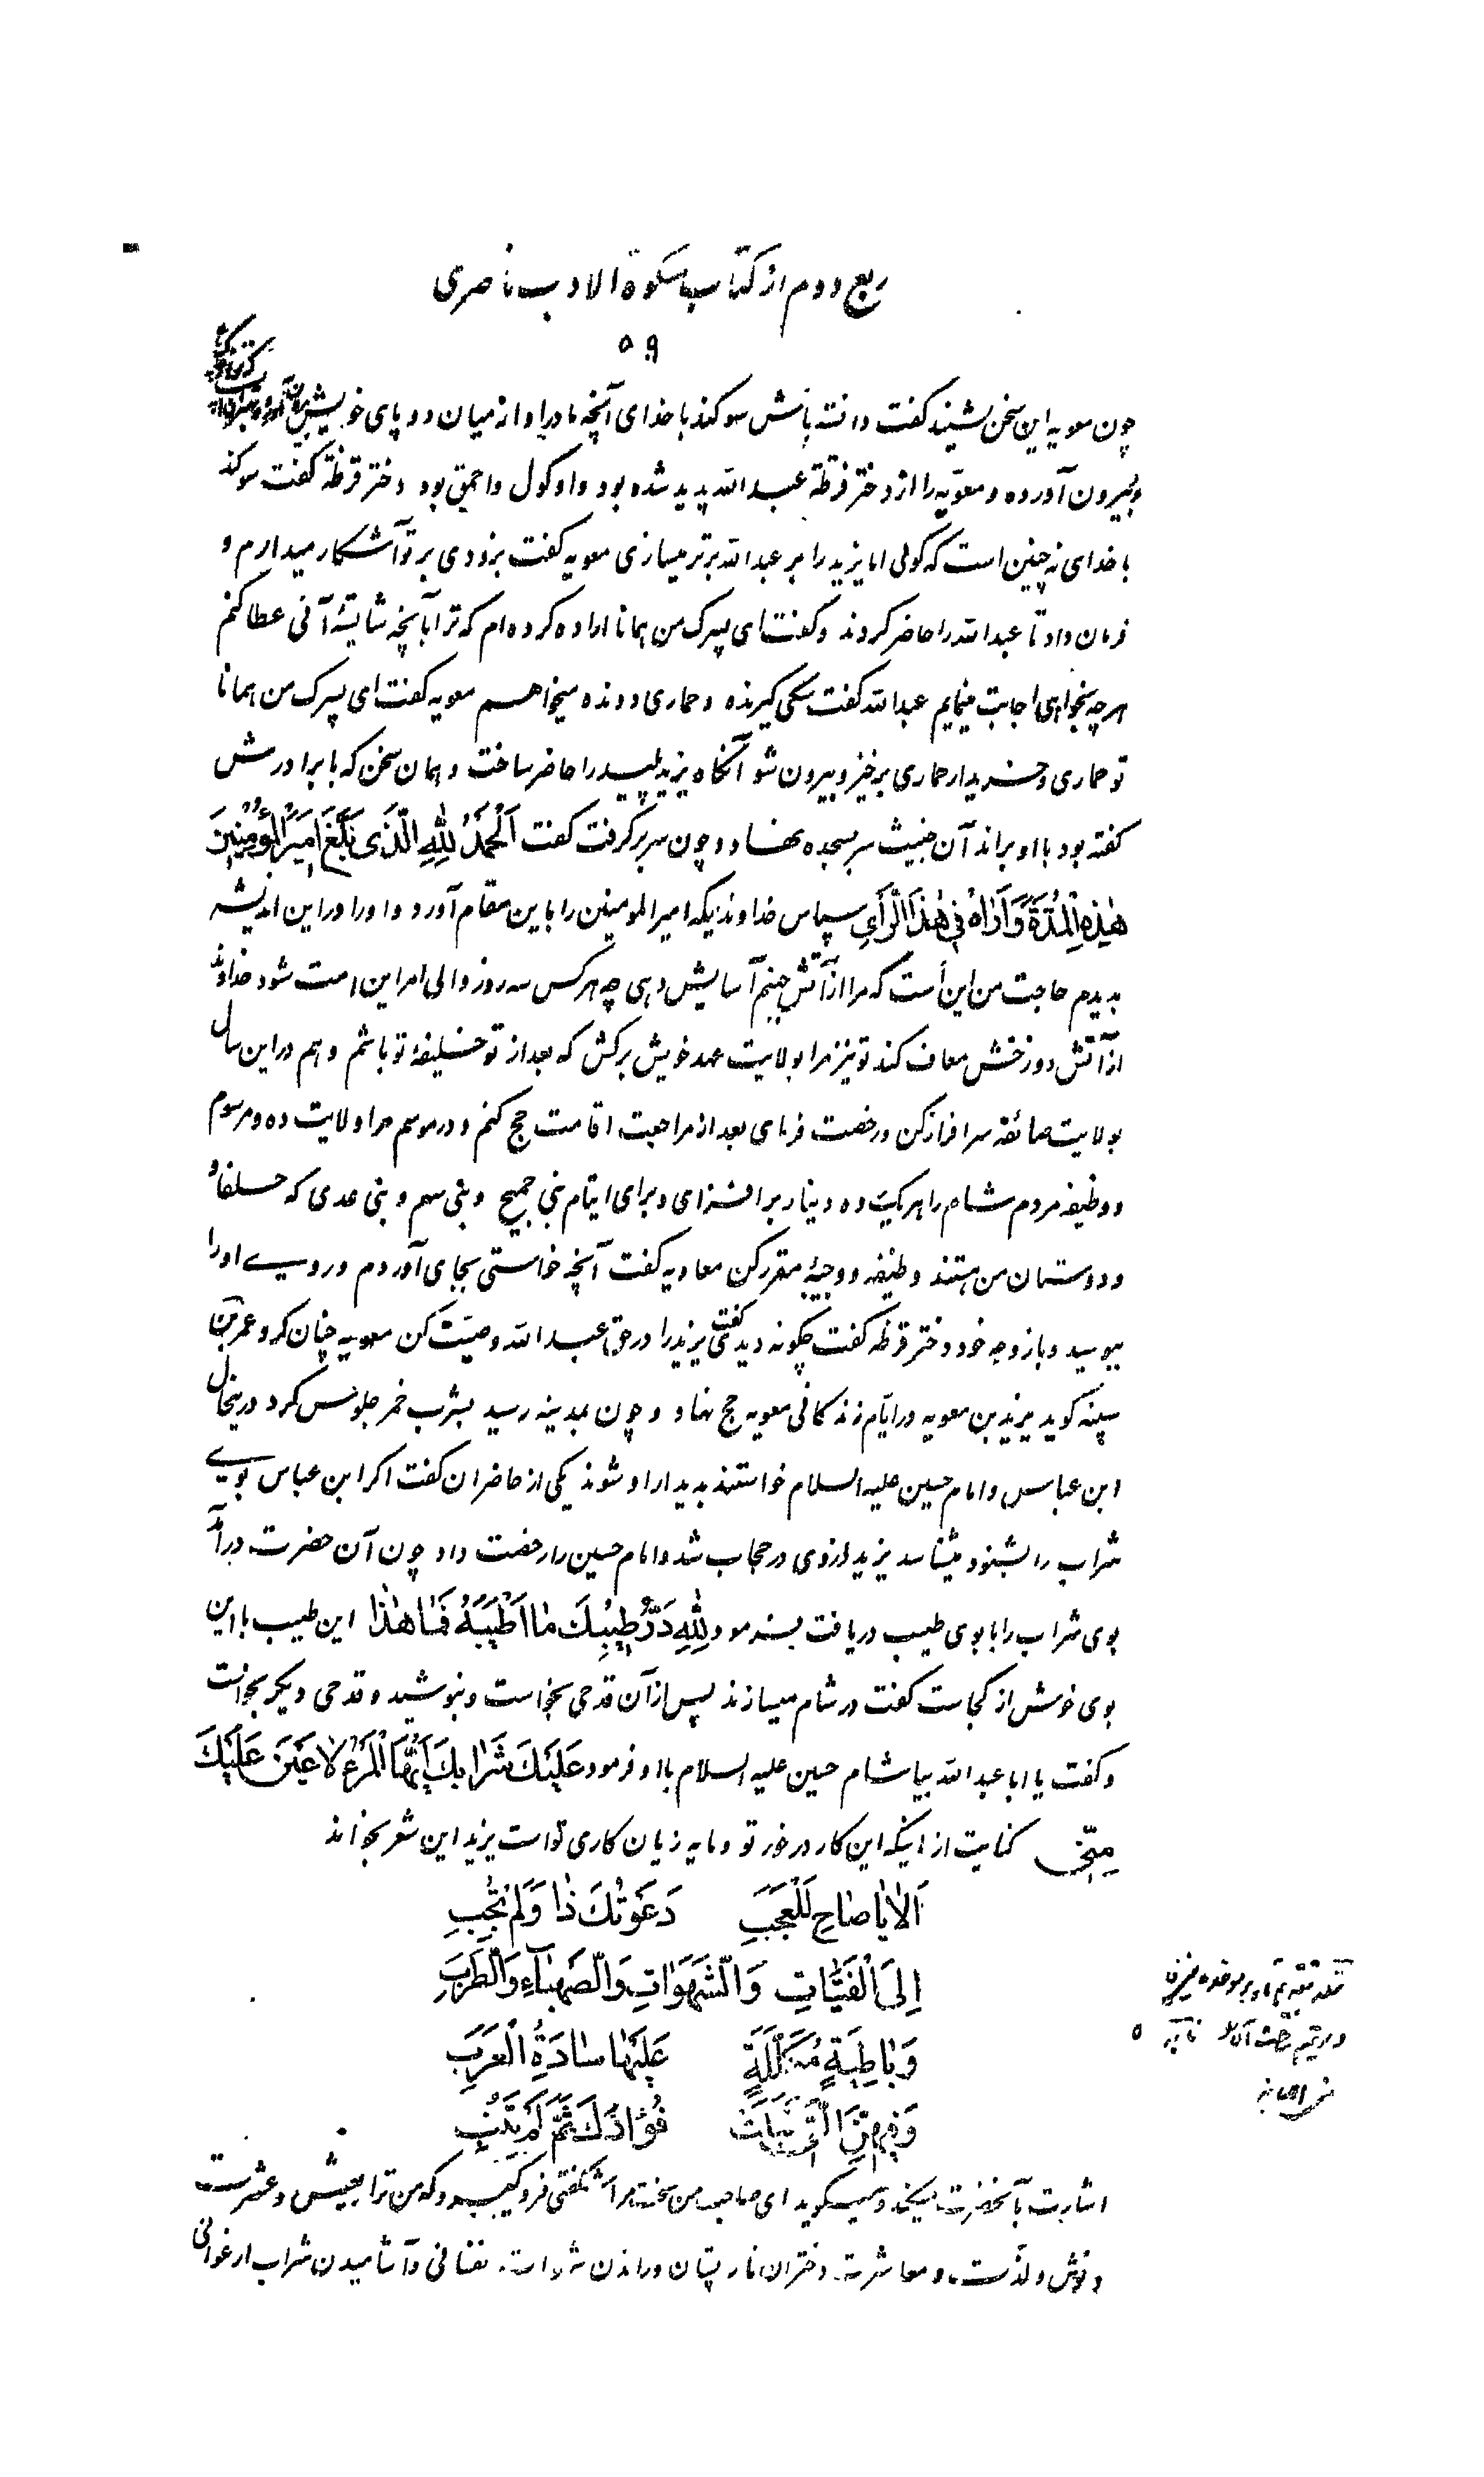 ربع دوم از کتاب مشکوة الادب ناصری
۵۹
چون معویه این سخن بشنید گفت دانسته باش سوگند با خدای آنچه مادر او از میان دو پای خویش
بیرون آورده و معویه را از دختر قرظة عبد الله پدید شده بود و او گول و احمق بود دختر قرظة گفت سوگند
با خدای نه چنین است که گوئی اما یزید را بر عبد الله برتر میسازی معویه گفت بزودی بر تو آشکار میدارم و
فرمان داد تا عبد الله را حاضر کردند و گفت ای پسرک من همانا اراده کرده‌ام که ترا بآنچه شایسته آنی عطا کنم
هر چه بخواهی اجابت مینمایم عبد الله گفت سگی گیرنده و حماری دونده میخواهم معویه گفت ای پسرک من همانا
تو حماری و خریدار حماری برخیز و بیرون شو آنگاه یزید پلید را حاضر ساخت و همان سخن که با برادرش
گفته بود با او براند آن خبیث سر بسجده نهاد و چون سر بر گرفت گفت اَلْحَمْدُ لِلّهِ الَّذی بَلَّغَ اَمیرَ الْمُؤْمِنینَ
هٰذِهِ الْمُدَّةَ وَاَرٰاهُ فی هٰذَا الرَّأیِ سپاس خداوندیکه امیر المومنین را باین مقام آورد و او را در این اندیشه
بدیدم حاجت من این است که مرا از آتش جهنم آسایش دهی چه هر کس سه روز والی امر این امت شود خداوند
از آتش دوزخش معاف کند تو نیز مرا بولایت عهد خویش برکش که بعد از تو خلیفه تو باشم و هم در این سال
بولایت صائفه سرافراز کن و رخصت فرمای بعد از مراجعت اقامت حج کنم و در موسم مرا ولایت ده و مرسوم
و وظیفه مردم شام را هر یک ده دینار بر افزای و برای ایتام بنی جمح و بنی سهم و بنی عدی که حلفا و
و دوستان من هستند وظیفه و وجیبه مقرر کن معاویه گفت آنچه خواستی بجای آوردم و روی او را
ببوسید و با زوجه خود دختر قرظه گفت چگونه دیدی گفت یزید را در حق عبد الله وصیت کن معویه چنان کرد عمر بن
سینه گوید یزید بن معویه در ایام زندگانی معویه حج نهاد و چون بمدینه رسید بشرب خمر جلوس کرد در اینحال
ابن عباس و امام حسین علیه السلام خواستند بدیدار او شوند یکی از حاضران گفت اگر ابن عباس بوی
شراب را بشنود میشناسد یزید از وی در حجاب شد و امام حسین را رخصت داد چون آن حضرت در آمد
بوی شراب را با بوی طیب دریافت بفرمود لِلّهِ دَرُّ طیبِكَ مٰا اَطْیَبَهُ فَمٰا هٰذٰا این طیب با این
بوی خوش از کجاست گفت در شام میسازند پس از آن قدحی بخواست و بنوشید و قدحی دیگر بخواست
و گفت یا ابا عبد الله بیاشام حسین علیه السلام با او فرمود عَلَیْكَ شَرٰابَكَ اَیُّهَا الْمَرْءُ لٰا عَیْنَ عَلَیْكَ
مِنّی کنایت از اینکه این کار در خور تو و مایه زیان کاری تو است یزید این شعر بخواند
اَلٰا یٰا صٰاحِ لِلْعَجَبِ دَعَوْتُكَ ذٰا وَلَمْ تُجِبِ
اِلَی الْفَتَیٰاتِ وَالشَّهَوٰاتِ وَالصَّهْبٰآءِ وَالطَّرَبِ
وَبٰاطِیَةٍ مُکَلَّلَةٍ عَلَیْهٰا سٰادَةُ الْعَرَبِ
وَفیهِنَّ الَّتی تَبَلَتْ فُؤٰادَكَ ثُمَّ لَمْ تَتُبِ
اشارت بآنحضرت میکند و میگوید ای صاحب من سخت مرا شگفتی فرو گیرد که من ترا بعیش و عشرت
و نوش و لذت و معاشرت دختران نار پستان و راندن شهوات نفسانی و آشامیدن شراب ارغوانی